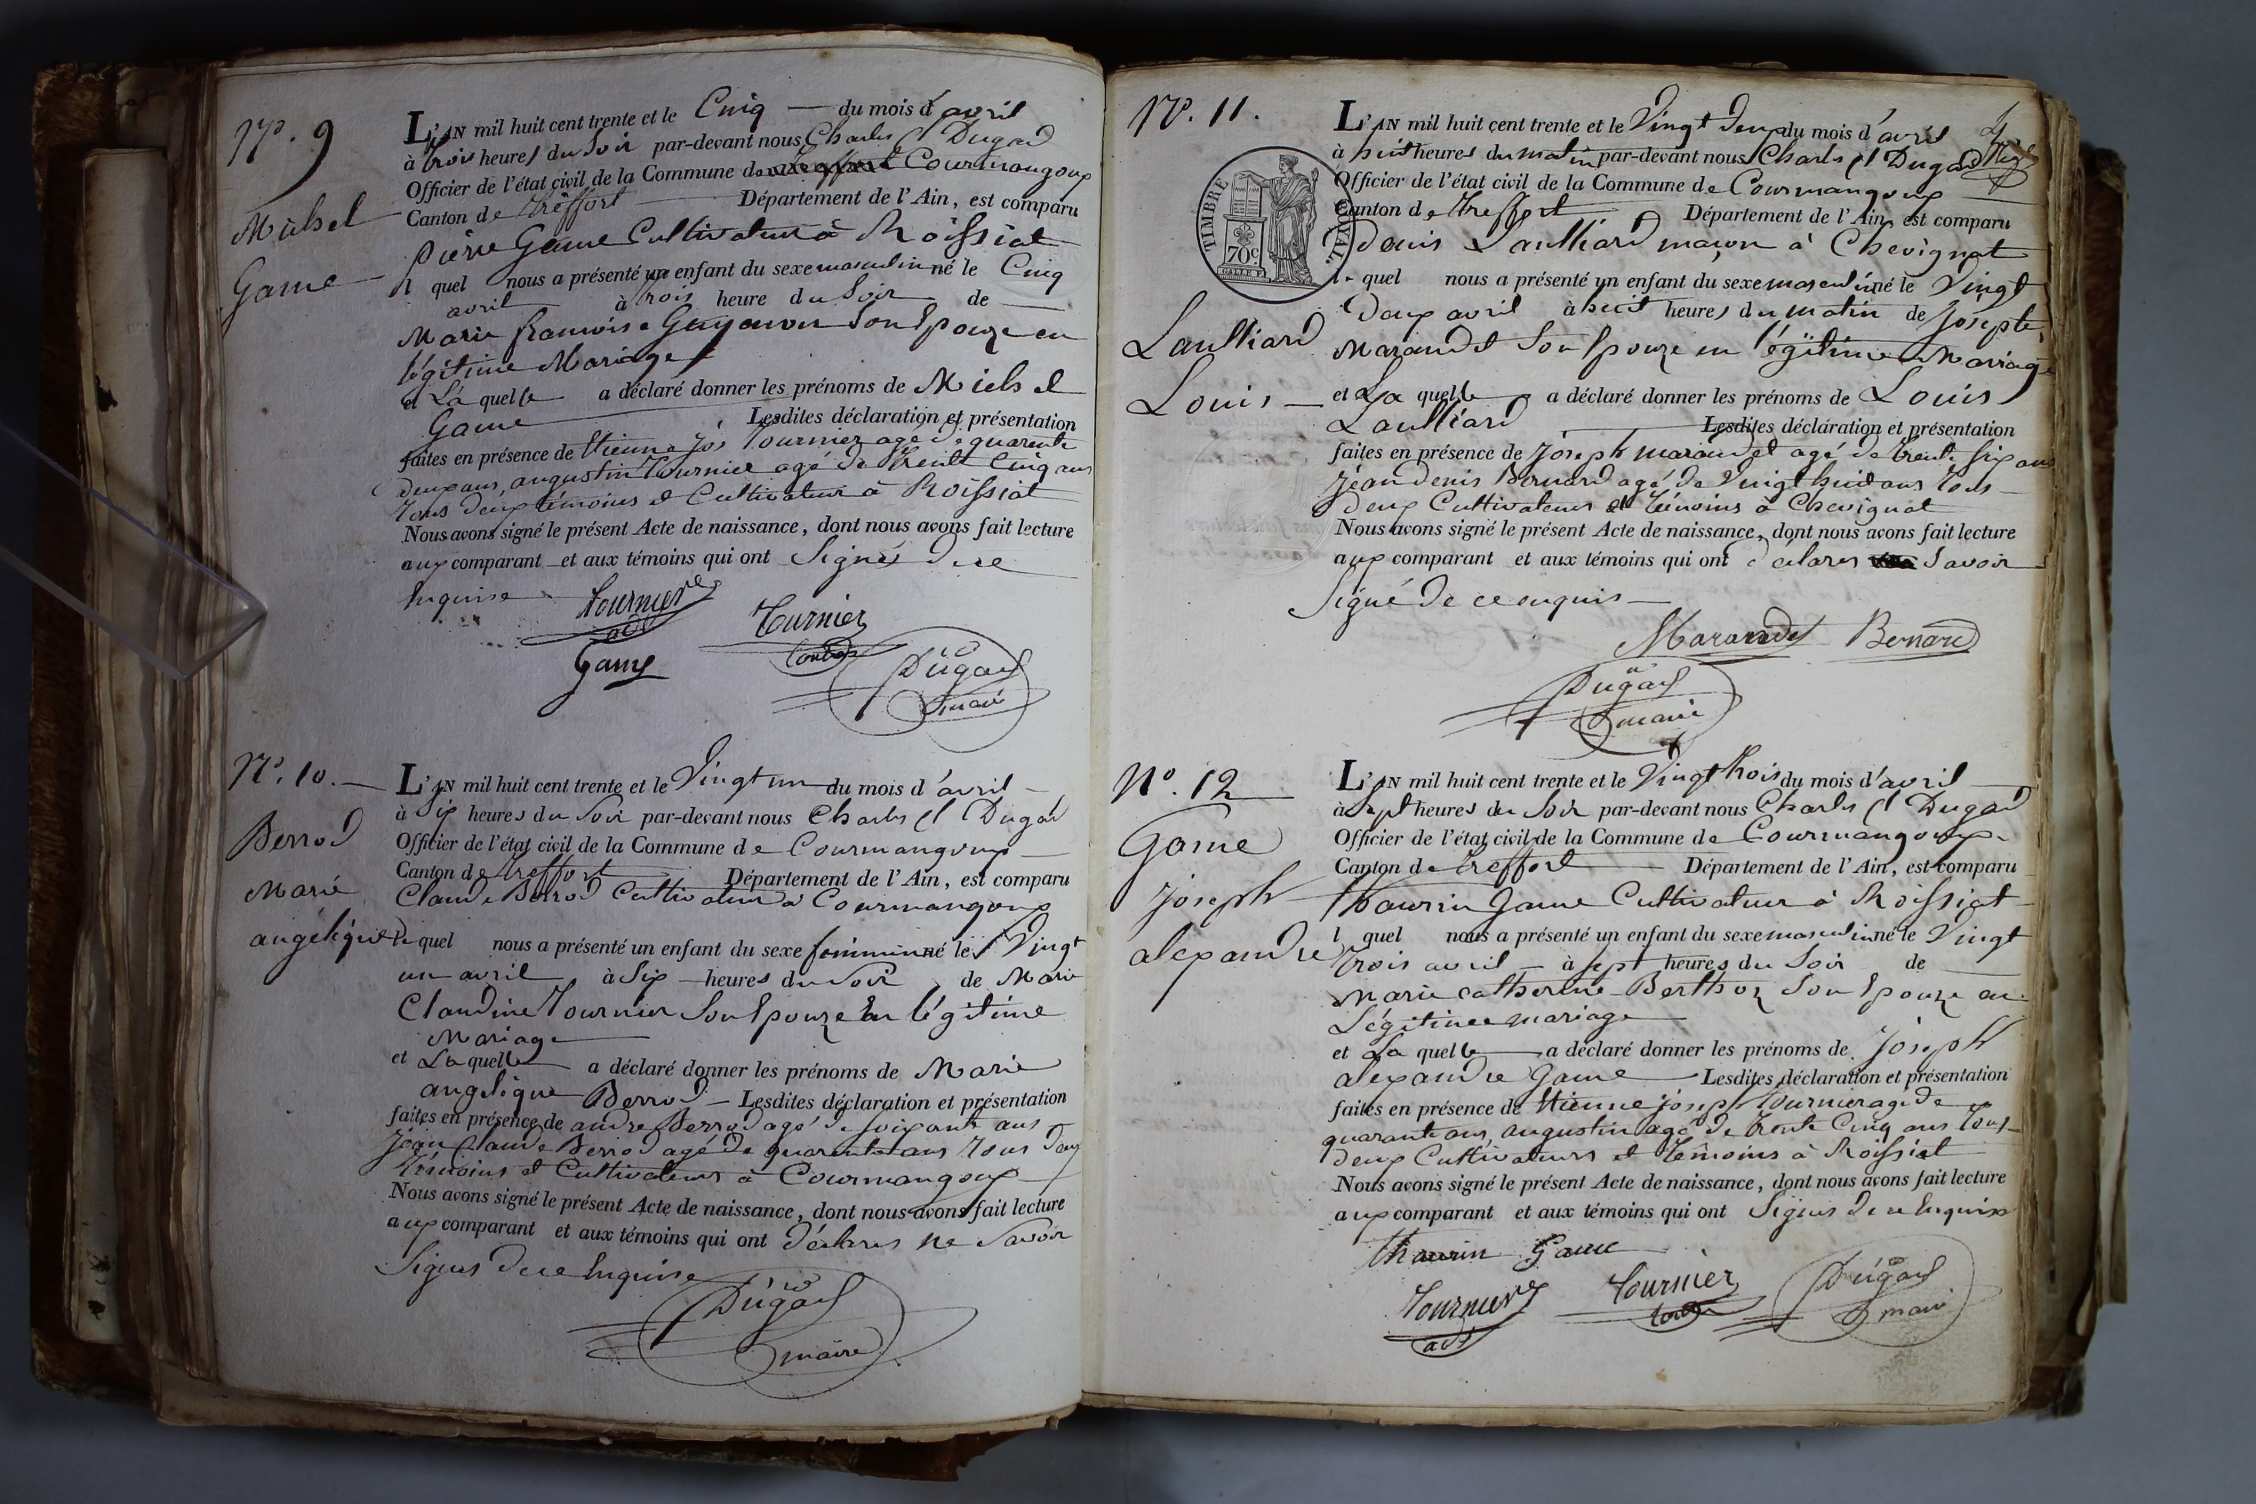 N°. 9
Michel
Game
L'AN mil huit cent trente et le Cinq du mois d'avril
à trois heures du Soir par-devant nous Charles Cl Dugad
Officier de l'état civil de la Commune de Courmangoux
Canton de Treffort Département de l'Ain, est comparu
Pierre Game Cultivateur à Roissiat
l quel nous a présenté un enfant du sexe masculin né le Cinq
avril à trois heure du Soir de
Marie francoise Guyenon Son Epouze en
légitime Mariage
et La quelle a déclaré donner les prénoms de Michel
Game Lesdites déclaration et présentation
faites en présence de Etienne Jos Tournier agé de quarente
deux ans, augustin Tournier agé de trente Cinq ans
tous deux témoins et Cultivateur à Roissiat
Nous avons signé le présent Acte de naissance, dont nous avons fait lecture
aux comparant et aux témoins qui ont Signés de ce
Enquise
Tournier
adt
Tournier
Game
Dugad
maire
N°. 10.
Berrod
Marie
angélique
L'AN mil huit cent trente et le Vingt un du mois d'avril
à Six heures du Soir par-devant nous Charles Cl Dugad
Officier de l'état civil de la Commune de Courmangoux
Canton de Treffort Département de l'Ain, est comparu
Claude Berrod Cultivateur à Courmangoux
le quel nous a présenté un enfant du sexe feminin né le Vingt
un avril à Six heures du Soir de Marie
Claudine Tournier Son Epouze En légitime
Mariage
et La quelle a déclaré donner les prénoms de Marie
angelique Berrod Lesdites déclaration et présentation
faites en présence de andre Berrod agé de soixante ans
jean Claude Berrod agé de quarente ans tous deux
Témoins et Cultivateurs à Courmangoux
Nous avons signé le présent Acte de naissance, dont nous avons fait lecture
aux comparant et aux témoins qui ont déclarés ne Savoir
Signer de ce Enquise
Dugad
maire
N°. 11.
TIMBRE ROYAL
70c.
Laulliard
Louis
L'AN mil huit cent trente et le Vingt deux du mois d'avril
à huit heures du matin par-devant nous Charles Cl Dugad
Officier de l'état civil de la Commune de Courmangoux
Canton de Treffort Département de l'Ain, est comparu
Denis Laulliard maçon à Chevignat
le quel nous a présenté un enfant du sexe masculin né le Vingt
Deux avril à huit heures du matin de Josepte
Marandet Son Epouze en légitime Mariage
et La quelle a déclaré donner les prénoms de Louis
Laulliard Lesdites déclaration et présentation
faites en présence de Joseph marandet agé de trente Six ans
Jean denis Bernard agé de Vingt huit ans tous
deux Cultivateurs et Témoins à Chevignat
Nous avons signé le présent Acte de naissance, dont nous avons fait lecture
aux comparant et aux témoins qui ont déclarés Savoir
Signé de ce enquis
Marandet Bernard
Dugad
maire
N°. 12
Game
joseph
alexandre
L'AN mil huit cent trente et le Vingt trois du mois d'avril
à Sept heures du Soir par-devant nous Charles Cl Dugad
Officier de l'état civil de la Commune de Courmangoux
Canton de Treffort Département de l'Ain, est comparu
thaurin Game Cultivateur à Roissiat
l quel nous a présenté un enfant du sexe masculin né le Vingt
Trois avril à sept heures du Soir de
Marie catherine Berthoz Son Epouze en
Légitime mariage
et La quelle a déclaré donner les prénoms de joseph
alexandre Game Lesdites déclaration et présentation
faites en présence de Etienne joseph tournier agé de
quarante ans, augustin agé de trente Cinq ans tous
deux Cultivateurs et témoins à Roissiat
Nous avons signé le présent Acte de naissance, dont nous avons fait lecture
aux comparant et aux témoins qui ont Signés de ce Enquise
thaurin Game
Tournier
adt
Tournier
Dugad
maire